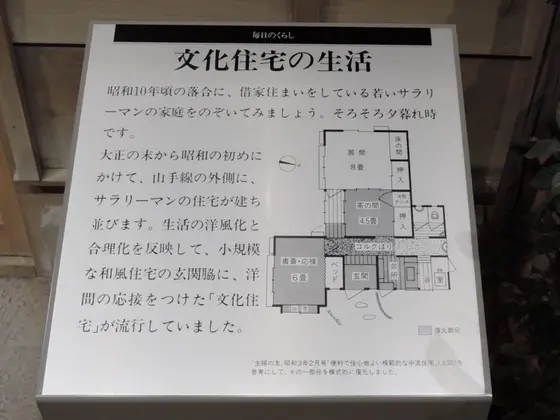 毎日のくらし
文化住宅の生活
昭和10年頃の落合に、借家住まいをしている若いサラリ
ーマンの家庭をのぞいてみましょう。そろそろ夕暮れ時
です。
大正の末から昭和の初めに
かけて、山手線の外側に、
サラリーマンの住宅が建ち
並びます。生活の洋風化と
合理化を反映して、小規模
な和風住宅の玄関脇に、洋
間の応接をつけた「文化住
宅」が流行していました。
床の間
居間
8畳
押入
茶の間
4.5畳
押入
コルクばり
書斎・応接
6畳
ベッド
玄関
台所
浴
復元部分
「主婦の友」昭和3年2月号「便利で住心地よい模範的な中流住宅」
参考にして、その一部分を模式的に復元しました。